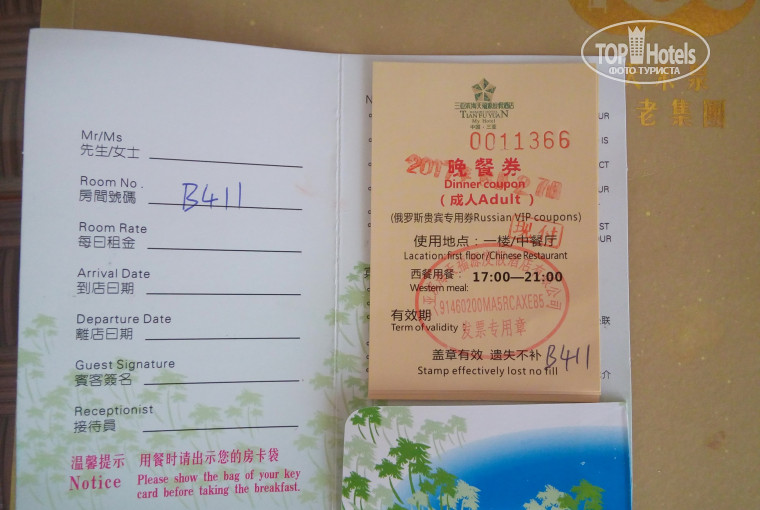 TOPHotels
ФОТО ТУРИСТА
老集團
Mr/Ms
先生/女士
Room No.
房間號碼 B411
Room Rate
每日租金
Arrival Date
到店日期
Departure Date
離店日期
Guest Signature
賓客簽名
Receptionist
接待員
温馨提示 用餐时请出示您的房卡袋
Notice Please show the bag of your key
card before taking the breakfast.
TIANFUYUAN
中国·三亚
0011366
晚餐券
Dinner coupon
(成人Adult)
(俄罗斯贵宾专用券Russian VIP coupons)
现付
使用地点:一楼/中餐厅
Lacation: first floor /Chinese Restaurant
西餐用餐: 17:00—21:00
Westem meal:
91460200MA5RCAXE85
有效期
Term of validity:
发票专用章
盖章有效 遗失不补 B411
Stamp effectively lost no fill